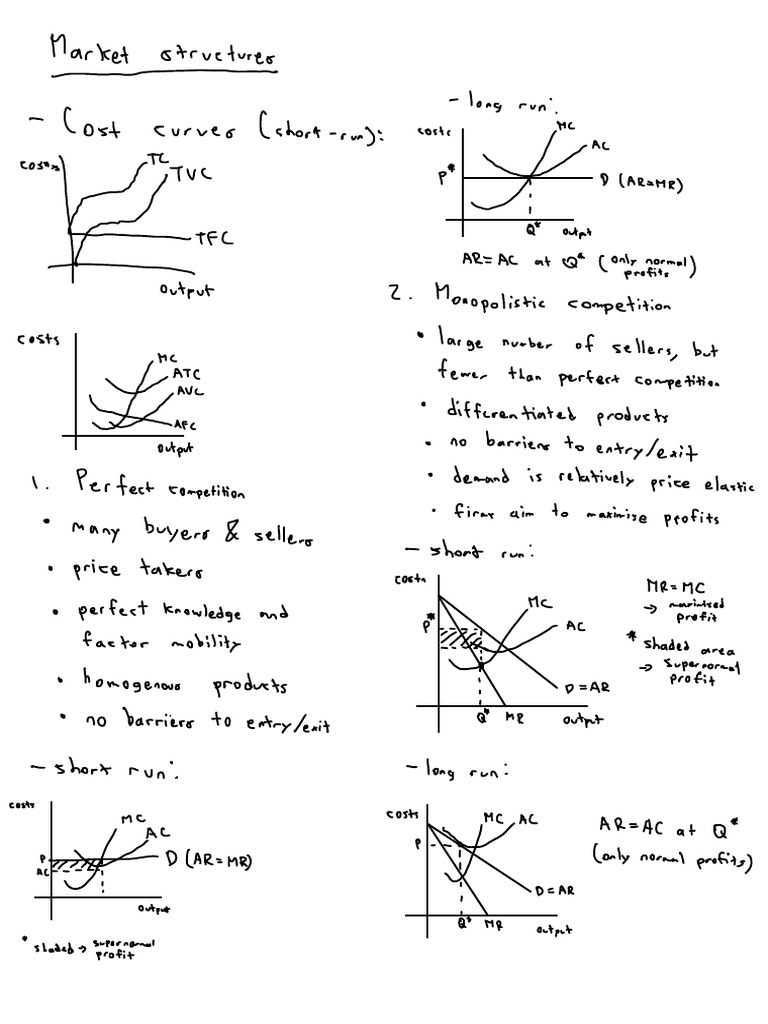 Market structures
- Cost curves (short-run):
Costs
TC
TVC
TFC
Output
Costs
MC
ATC
AVC
AFC
Output
1. Perfect competition
• many buyers & sellers
• price takers
• perfect knowledge and
factor mobility
• homogenous products
• no barriers to entry/exit
- short run:
Costs
MC
AC
P
D (AR=MR)
AC
Output
* shaded → supernormal
profit
- long run:
Costs
MC
AC
P*
D (AR=MR)
Q*
Output
AR=AC at Q* (only normal
profits)
2. Monopolistic competition
• large number of sellers, but
fewer than perfect competition
• differentiated products
• no barriers to entry/exit
• demand is relatively price elastic
• firms aim to maximise profits
- short run:
Costs
MC
AC
P*
D=AR
Q*
MR
Output
MR=MC
→ maximised
profit
* shaded area
→ supernormal
profit
- long run:
Costs
MC
AC
P
D=AR
Q*
MR
Output
AR=AC at Q*
(only normal profits)